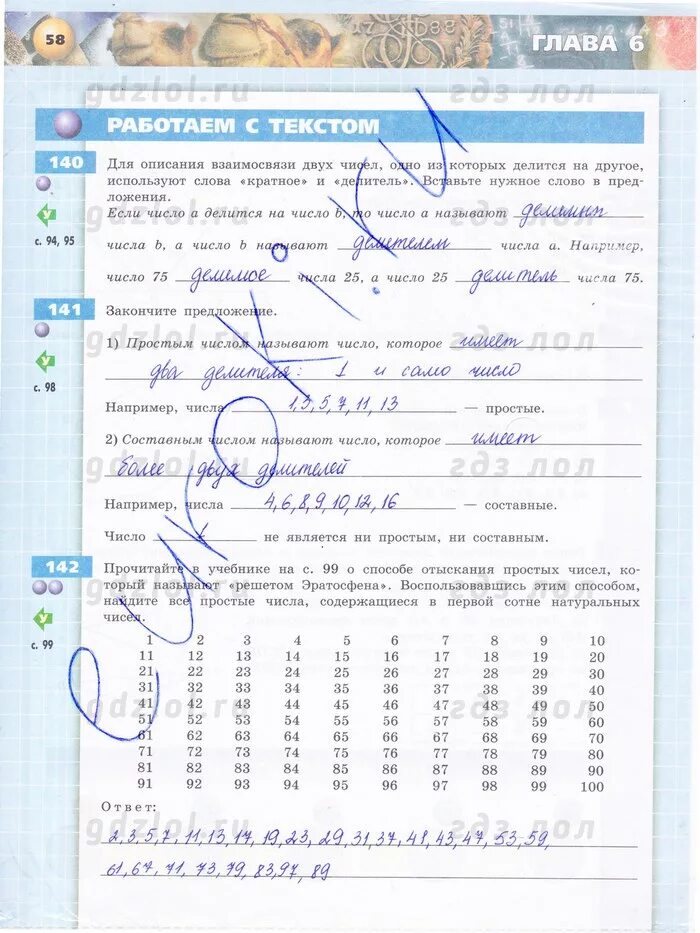 58
ГЛАВА 6
gdzlol.ru гдз лол
РАБОТАЕМ С ТЕКСТОМ
140 Для описания взаимосвязи двух чисел, одно из которых делится на другое,
используют слова «кратное» и «делитель». Вставьте нужное слово в пред-
ложения.
с. 94, 95
Если число a делится на число b, то число a называют делимым
числа b, а число b называют делителем числа a. Например,
число 75 делимое числа 25, а число 25 делитель числа 75.
141 Закончите предложение.
с. 98
1) Простым числом называют число, которое имеет
два делителя: 1 и само число
Например, числа 1,3,5,7,11,13 — простые.
2) Составным числом называют число, которое имеет
более двух делителей
Например, числа 4,6,8,9,10,12,16 — составные.
Число 1 не является ни простым, ни составным.
142 Прочитайте в учебнике на с. 99 о способе отыскания простых чисел, ко-
торый называют «решетом Эратосфена». Воспользовавшись этим способом,
найдите все простые числа, содержащиеся в первой сотне натуральных
чисел.
с. 99
1 2 3 4 5 6 7 8 9 10
11 12 13 14 15 16 17 18 19 20
21 22 23 24 25 26 27 28 29 30
31 32 33 34 35 36 37 38 39 40
41 42 43 44 45 46 47 48 49 50
51 52 53 54 55 56 57 58 59 60
61 62 63 64 65 66 67 68 69 70
71 72 73 74 75 76 77 78 79 80
81 82 83 84 85 86 87 88 89 90
91 92 93 94 95 96 97 98 99 100
Ответ:
2,3,5,7,11,13,17,19,23,29,31,37,41,43,47,53,59,
61,67,71,73,79,83,97,89
eurokI.ru